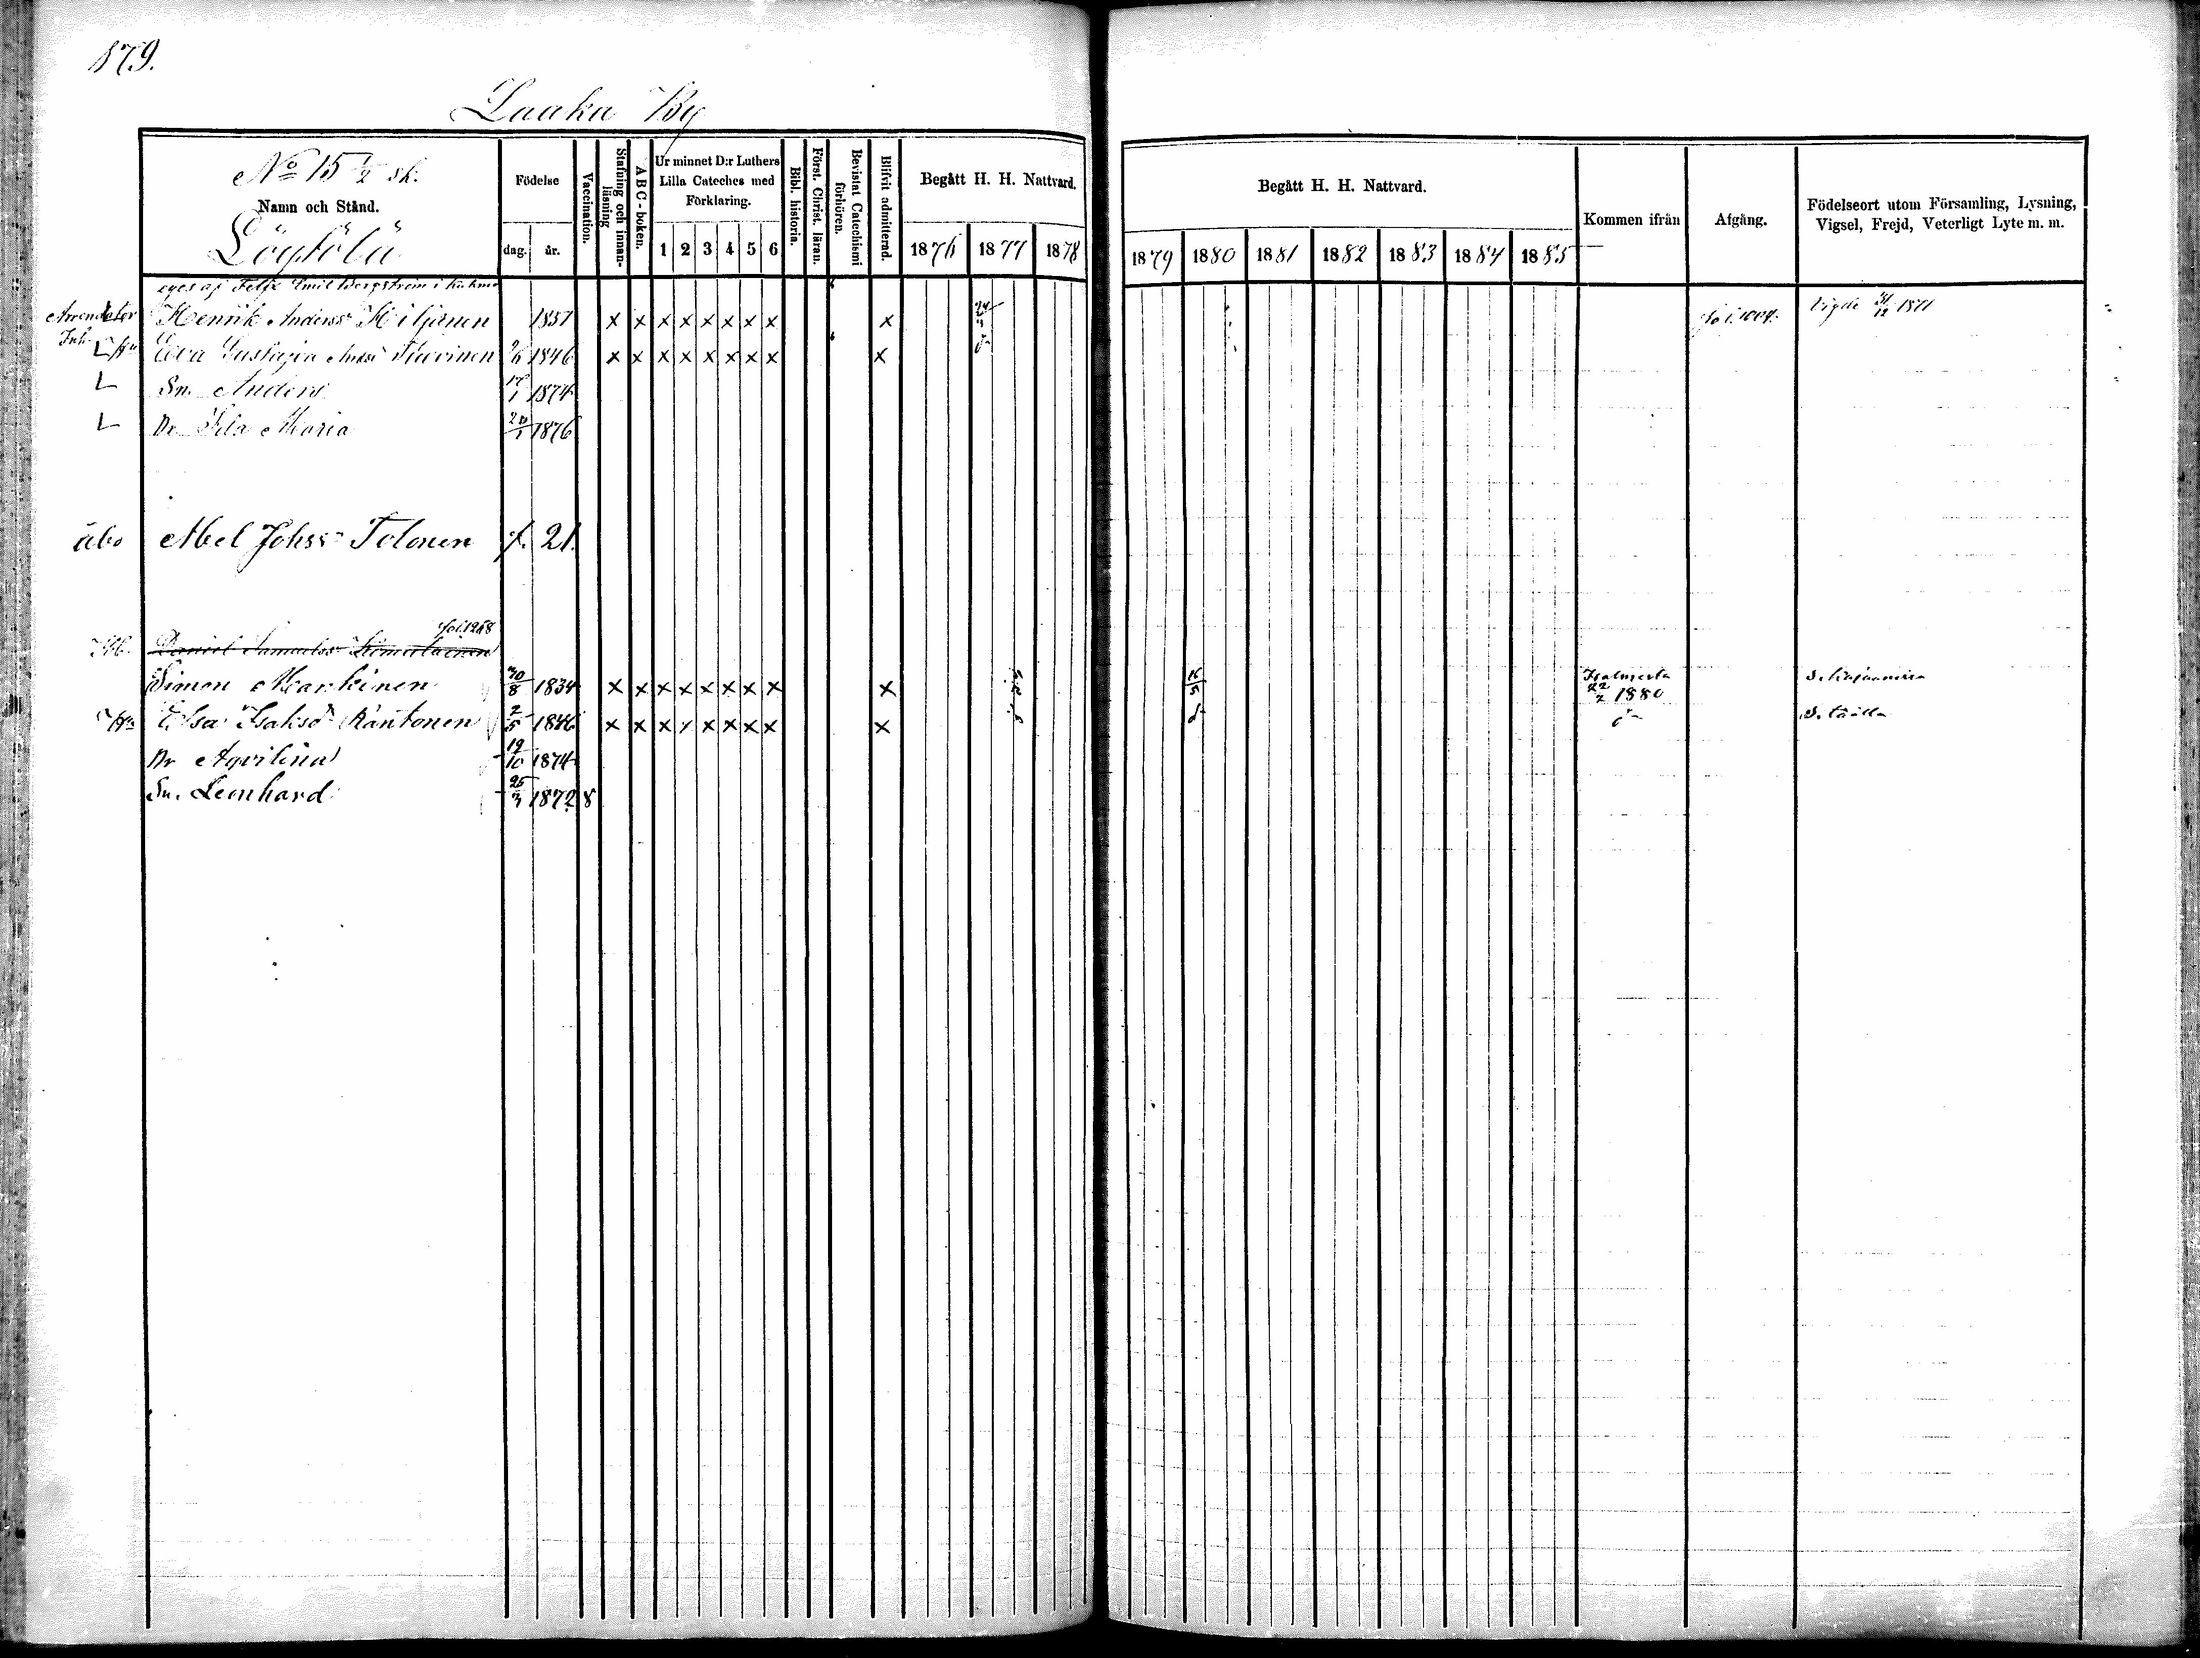 179.
Laaka By
No 15 1/2 sk.
Namn och Stånd.
Löytölä
Födelse
dag. år.
Vaccination.
Stafning och innanläsning
A B C - boken.
Ur minnet D:r Luthers Lilla Cateches med Förklaring.
1 2 3 4 5 6
Bibl. historia.
Först. Christ. läran.
Bevistat Catechismi förhören.
Blifvit admitterad.
Begått H. H. Nattvard.
1876 1877 1878
Begått H. H. Nattvard.
1879 1880 1881 1882 1883 1884 1885
Kommen ifrån
Afgång.
Födelseort utom Församling, Lysning, Vigsel, Frejd, Veterligt Lyte m. m.
eges af Felix Emil Bergström i Kuhmo
Arrendator Henrik Anderss Kiljänen 1851 x x x x x x x x x 24 fol. 1004. Vigde 31/12 1871
Inh. Hu Eva Gustafva 1846 x x x x x x x x x
Sn. Anders 17/1 1874
Dr 20/1 1876
åbo Abel Johss Tolonen f. 21.
fol. 1268
Daniel Samuelss
Simon Karkinen 30/8 1834 x x x x x x x x x 16/5 22/2 1880
Hu Elsa Isaksd Räntonen 2/5 1846 x x x x x x x x x
Dr Aqvilina 19/10 1874
Sn. Leonhard 25/3 1872.8